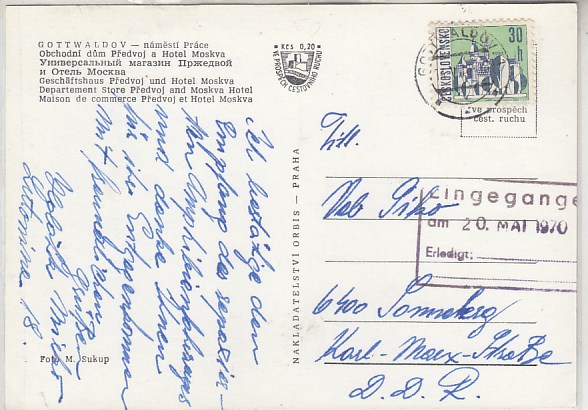 GOTTWALDOV — náměstí Práce
Obchodní dům Předvoj a Hotel Moskva
Универсальный магазин Пржедвой
и Отель Москва
Geschäftshaus Předvoj und Hotel Moskva
Departement Store Předvoj and Moskva Hotel
Maison de commerce Předvoj et Hotel Moskva
Kčs 0,20
VE PROSPĚCH CESTOVNÍHO RUCHU
ČESKOSLOVENSKO
30 h
GOTTWALDOV
ve prospěch
cest. ruchu
Ich bestätige den
Empfang des reparier-
ten
und danke Ihnen
für ihr Entgegenkommen
Mit freundlichen
Grüßen
Lutonina 18.
Foto M. Sukup
NAKLADATELSTVÍ ORBIS — PRAHA
Titl.
Veb Piko
6400 Sonneberg
Karl-Marx-Straße
D. D. R.
Eingegange
am 20. MAI 1970
Erledigt: